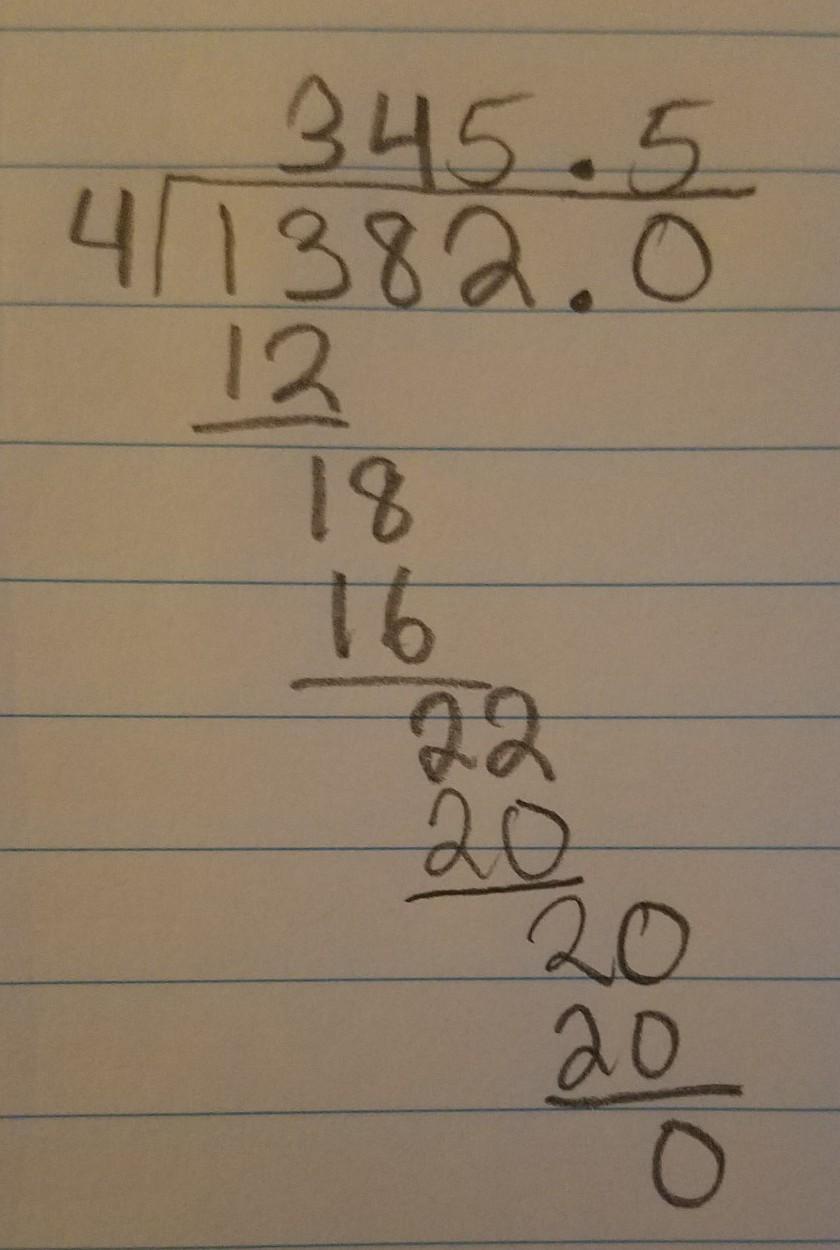 345.5
4 1382.0
12
18
16
22
20
20
20
0